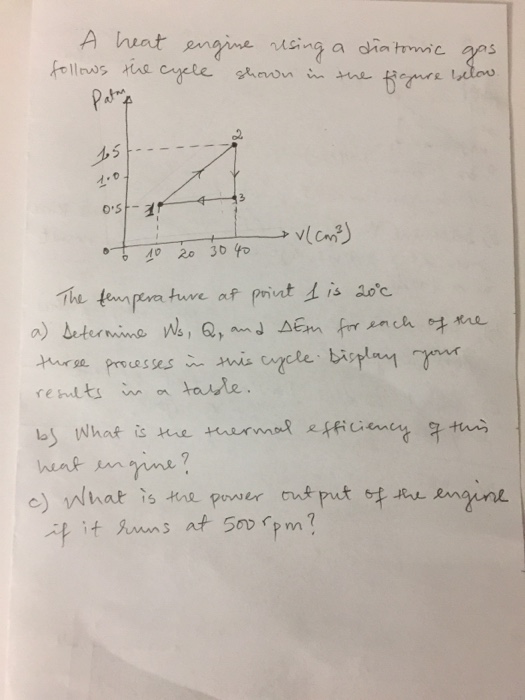 A heat engine using a diatomic gas
follows the cycle shown in the figure below.
Patm
2
1.5
1.0
0.5
1
3
0
0 10 20 30 40
V(cm³)
The temperature at point 1 is 20°c
a) Determine Ws, Q, and ΔEth for each of the
three processes in this cycle. Display your
results in a table.
b) What is the thermal efficiency of this
heat engine?
c) What is the power output of the engine
if it runs at 500 rpm?